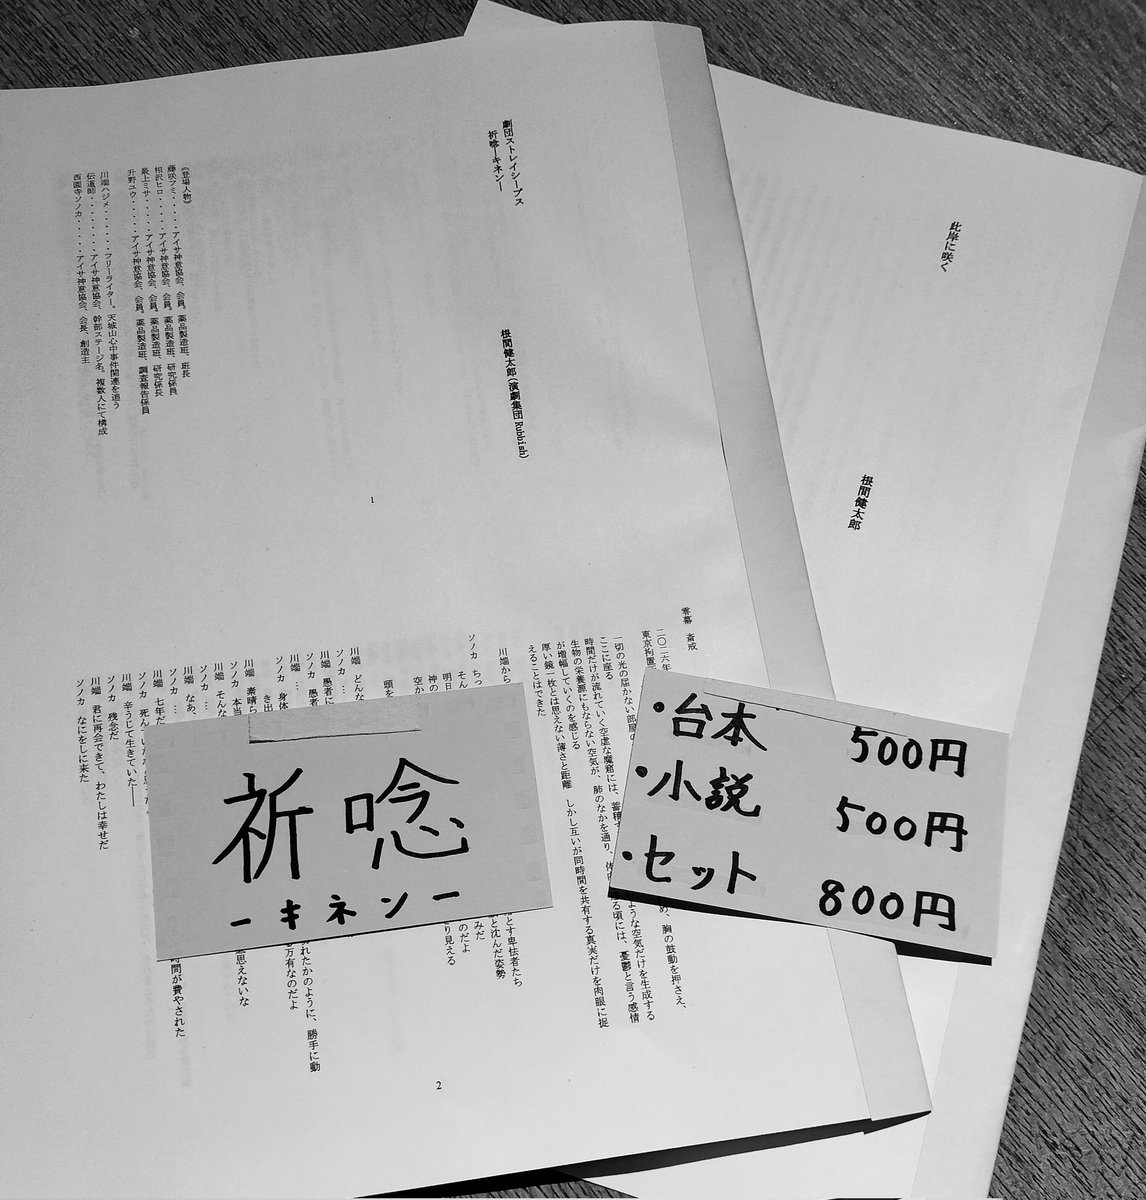 劇団ストレイシープス
祈唸ーキネンー
根間健太郎(演劇集団Rubbish)
《登場人物》
藤咲フミ・・・・・アイサ神意協会、会員。薬品製造班、班長
相沢ヒロ・・・・・アイサ神意協会、会員。薬品製造班、研究係員
最上ミサ・・・・・アイサ神意協会、会員。薬品製造班、研究係長
升野ユウ・・・・・アイサ神意協会、会員。薬品製造班、調査報告係員
川端ハジメ・・・・・フリーライター。天城山心中事件関連を追う
伝道師・・・・・・アイサ神意協会、幹部ステージ名。複数人にて構成
西園寺ソノカ・・・・・アイサ神意協会、会長、創造主
1
零幕 斎戒
二〇二六年
東京拘置
一切の光の届かない部屋の
ここに座る
時間だけが流れていく空虚な魔窟には、蓄積す
め、胸の鼓動を押さえ、
生物の栄養源にもならない空気が、肺のなかを通り、体
ような空気だけを生成する
が増幅していくのを感じる
る頃には、憂鬱と言う感情
厚い鏡一枚とは思えない薄さと距離 しかし互いが同時間を共有する真実だけを肉眼に捉
えることはできた
川端から
ソノカ ちっ
そん
明日
神の
空か
とす卑怯者たち
と沈んだ姿勢
みだ
のだよ
り見える
川端 どんな
ソノカ …
川端 愚者に
ソノカ 愚者
頭を
川端 …
ソノカ 身体
き出
れたかのように、勝手に動
万有なのだよ
川端 素晴ら
ソノカ 本当
川端 そんな
ソノカ …
思えないな
川端 なあ、
ソノカ …
川端 七年だ
時間が費やされた
ソノカ 死んで
川端 辛うじて生きていた――
ソノカ 残念だ
川端 君に再会できて、わたしは幸せだ
ソノカ なにをしに来た
2
此岸に咲く
根間健太郎
祈唸
ーキネンー
・台本 500円
・小説 500円
・セット 800円